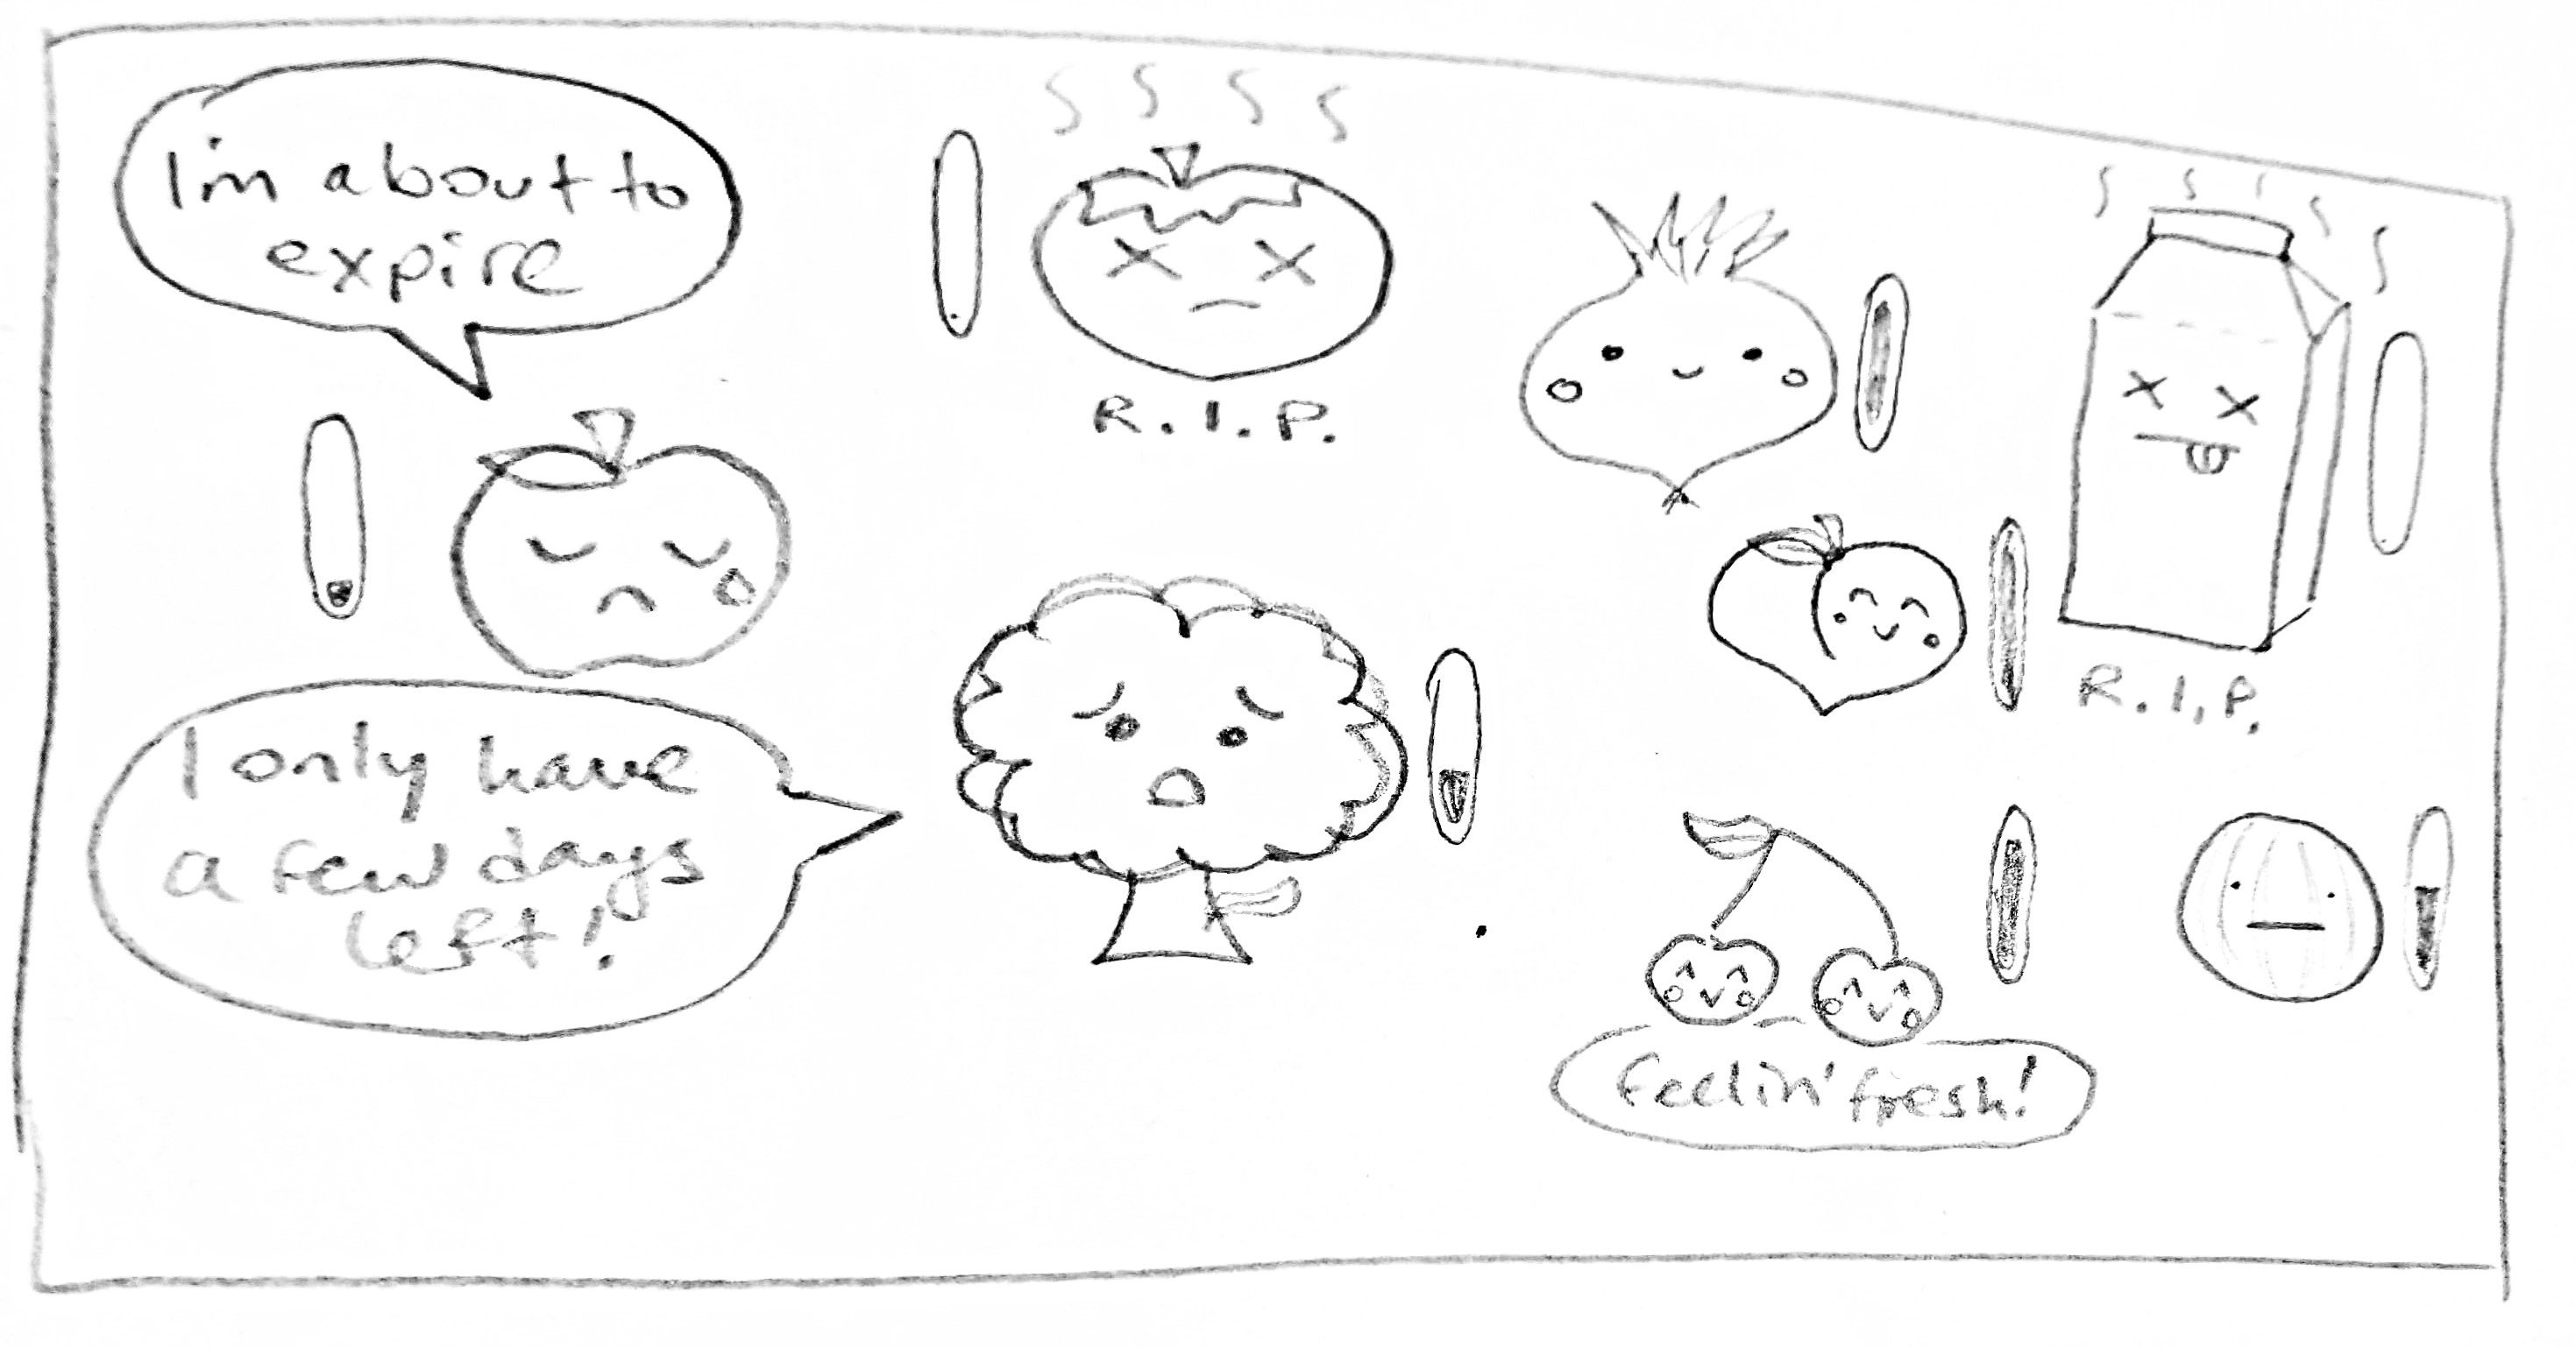 I'm about to
expire
R.I.P.
R.I.P.
I only have
a few days
left!
Feelin' fresh!